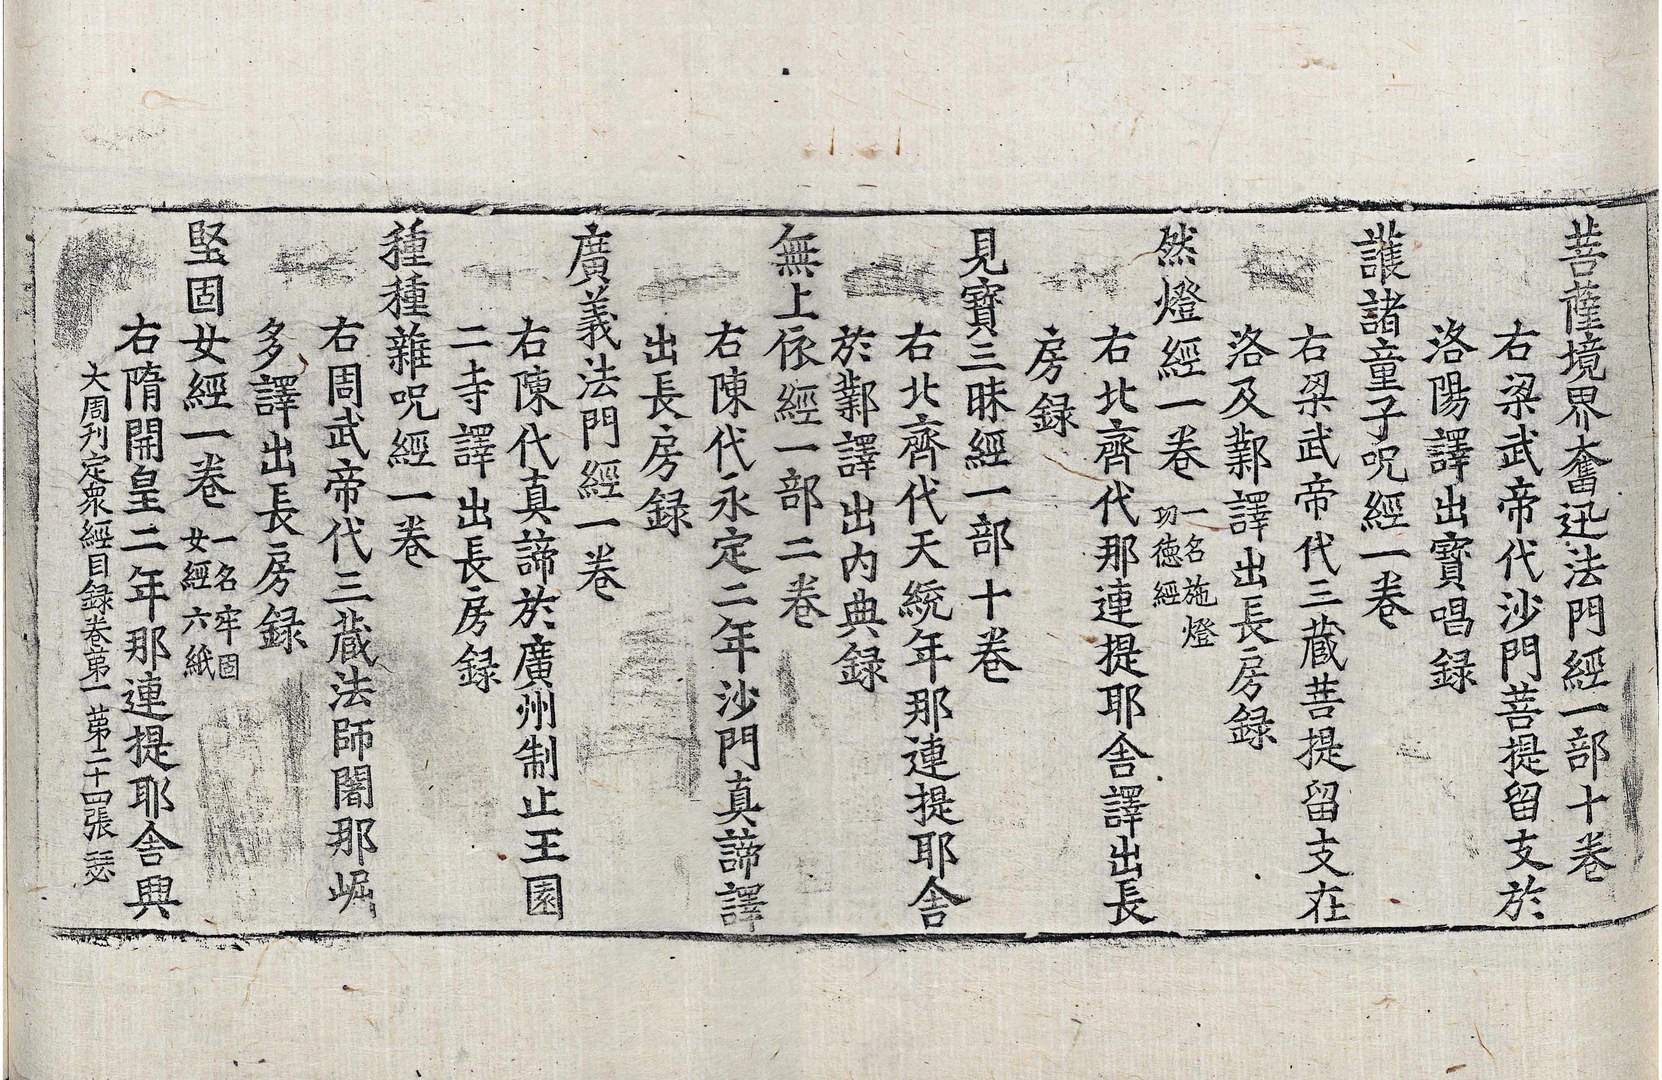 菩薩境界奮迅法門經一部十卷
右梁武帝代沙門菩提留支於
洛陽譯出寶唱録
護諸童子呪經一卷
右梁武帝代三藏菩提留支在
洛及鄴譯出長房録
然燈經一卷 一名施燈
功德經
右北齊代那連提耶舍譯出長
房録
見寶三昧經一部十卷
右北齊代天統年那連提耶舍
於鄴譯出内典録
無上依經一部二卷
右陳代永定二年沙門真諦譯
出長房録
廣義法門經一卷
右陳代真諦於廣州制止王園
二寺譯出長房録
種種雜呪經一卷
右周武帝代三藏法師闍那崛
多譯出長房録
堅固女經一卷 一名牢固
女經六紙
右隋開皇二年那連提耶舍與
大周刊定衆經目録卷第一 第二十四張 瑟